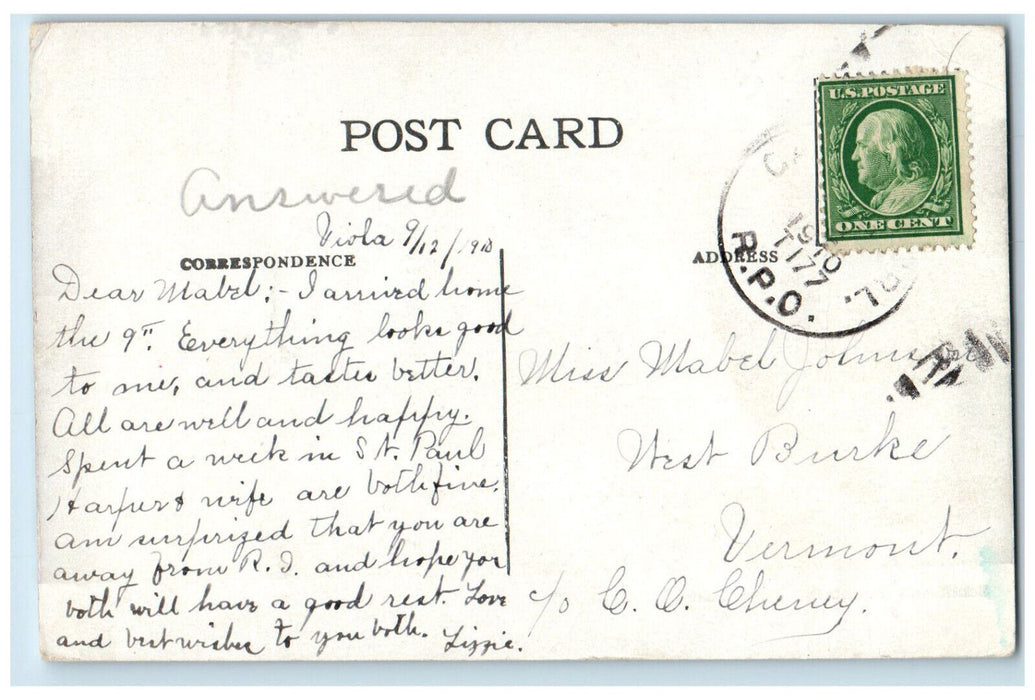 POST CARD
Answered
Viola 9/12/1910
CORRESPONDENCE
Dear Mabel:- I arrived home
the 9". Everything looks good
to me, and tastes better.
All are well and happy.
Spent a week in St. Paul
Harper & wife are both fine.
am surprized that you are
away from R.I. and hope you
both will have a good rest. Love
and best wishes to you both. Lizzie.
U.S. POSTAGE
ONE CENT
1910
T177
R.P.O.
ADDRESS
Miss Mabel Johnson
West Burke
Vermont.
c/o C. O. Cheney.